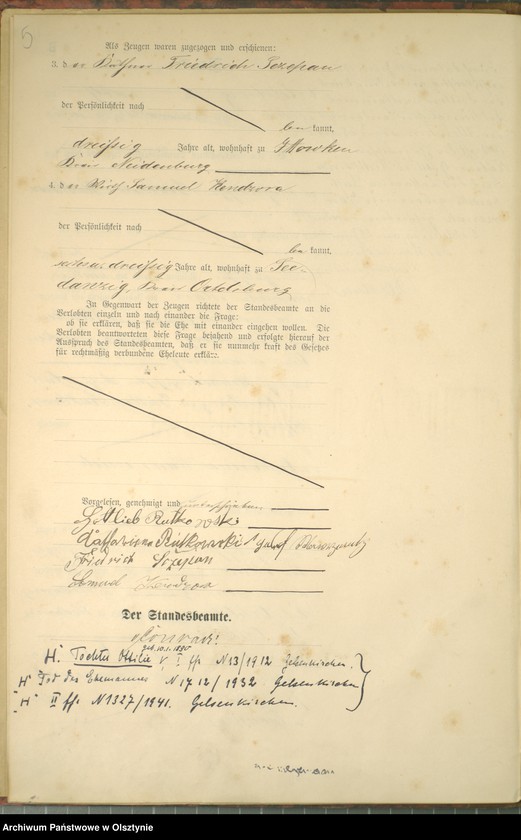 5
Als Zeugen waren zugezogen und erschienen:
3. der Friedrich Sczepan
der Persönlichkeit nach
kannt,
dreißig Jahre alt, wohnhaft zu
Kreis Neidenburg
4. der Wirth Samuel Kendzora
der Persönlichkeit nach
kannt,
dreißig Jahre alt, wohnhaft zu See-
danzig, Kreis Ortelsburg
In Gegenwart der Zeugen richtete der Standesbeamte an die
Verlobten einzeln und nach einander die Frage:
ob sie erklären, daß sie die Ehe mit einander eingehen wollen. Die
Verlobten beantworteten diese Frage bejahend und erfolgte hierauf der
Ausspruch des Standesbeamten, daß er sie nunmehr kraft des Gesetzes
für rechtmäßig verbundene Eheleute erkläre.
Vorgelesen, genehmigt und unterschrieben
Gottlieb Rutkowski
Rutkowski
Friedrich Sczepan
Kendzora
Der Standesbeamte.
geb. 10.1.1890
H. Tochter Ottilie I ff N 13/1912 Gelsenkirchen.
H Tod des Ehemannes N 1712/1932 Gelsenkirchen
H II ff N 1327/1941. Gelsenkirchen.
Archiwum Państwowe w Olsztynie